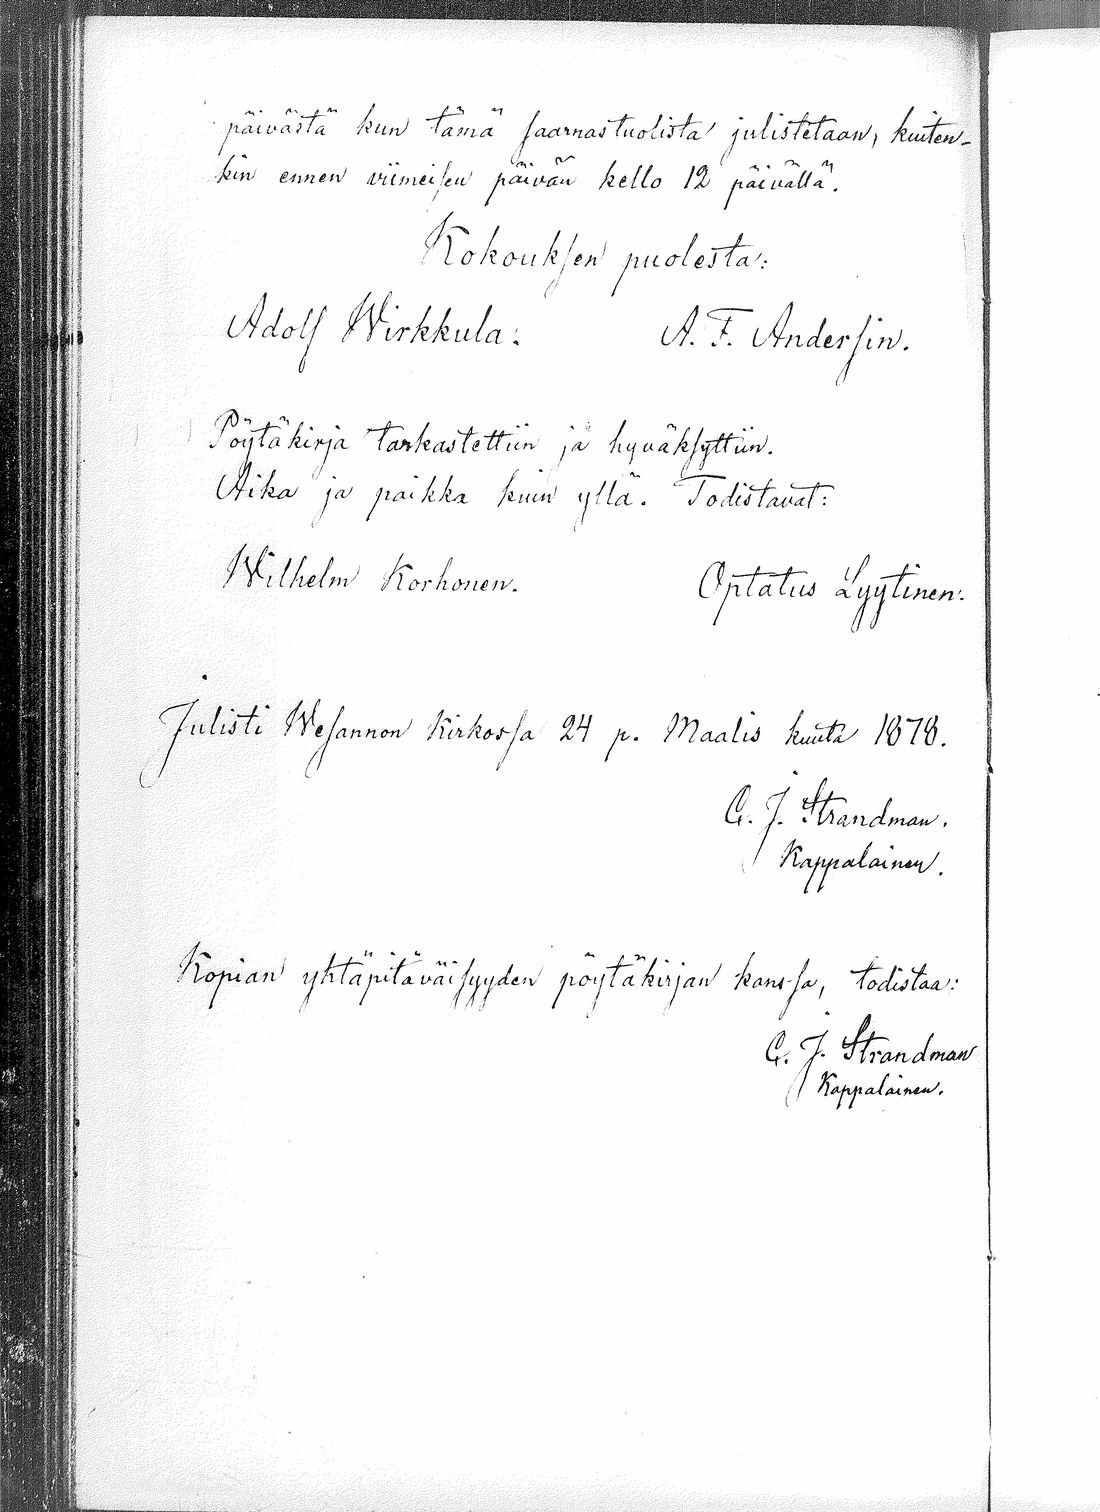 päivästä kun tämä saarnastuolista julistetaan, kuiten-
kin ennen viimeisen päivän kello 12 päivällä.
Kokouksen puolesta:
Adolf Wirkkula: A. F. Andersin.
Pöytäkirja tarkastettiin ja hyväksyttiin.
Aika ja paikka kuin yllä. Todistavat:
Wilhelm Korhonen. Optatus Lyytinen.
Julisti Wesannon Kirkossa 24 p. Maalis kuuta 1878.
C. J. Strandman.
Kappalainen.
Kopian yhtäpitäväisyyden pöytäkirjan kanssa, todistaa:
C. J. Strandman
Kappalainen.